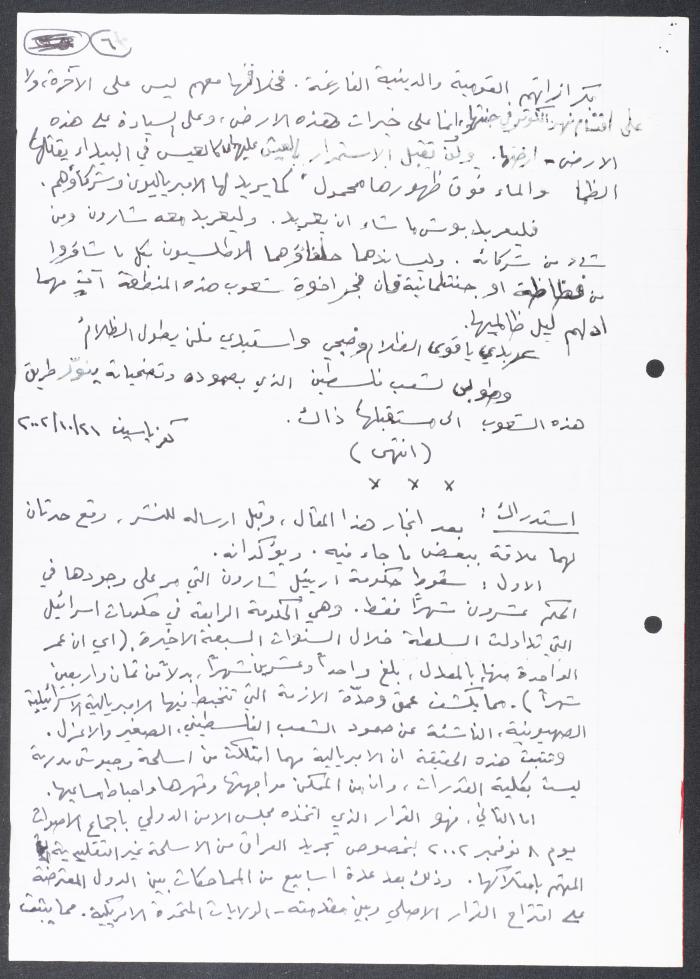 ٦
بكرازاتهم القومية والدينية الفارغة. فخلافها معهم ليس على الآخرة، ولا
على اقتسام نهر الكوثر في جنتها، انما على خيرات هذه الارض، وعلى السيادة على هذه
الارض - ارضنا. ولن تقبل الاستمرار بالعيش عليها كالعيس في البيداء يقتلها
الظما والماء فوق ظهورها محمول" كما يريد لها الامبرياليون وشركاؤهم.
فليعربد بوش ما شاء ان يعربد. وليعربد معه شارون ومن
شاء من شركائه. وليساندهما حلفاؤهما الاطلسيون بكل ما شاؤوا
من فظاظة او جنتلمانية فان فجر اخوة شعوب هذه المنطقة آت مهما
ادلهم ليل ظالميها.
عربدي يا قوى الظلام وضجي واستبدي فلن يطول الظلام
وطوبى لشعب فلسطين الذي بصموده وتضحياته ينوّر طريق
هذه الشعوب الى مستقبلها ذاك.
كفر ياسيف ٢٠٠٢/١٠/٢١
(انتهى)
x x x
استدراك: بعد انجاز هذا المقال، وقبل ارساله للنشر، وقع حدثان
لهما علاقة ببعض ما جاء فيه. ويؤكدانه.
الاول: سقوط حكومة اريئيل شارون التي مر على وجودها في
الحكم عشرون شهراً فقط. وهي الحكومة الرابعة في حكومات اسرائيل
التي تداولت السلطة خلال السنوات السبعة الاخيرة. (اي ان عمر
الواحدة منها بالمعدل، بلغ واحداً وعشرين شهراً، بدلاً من ثمان واربعين
شهراً). مما يكشف عمق وحدّة الازمة التي تتخبط فيها الامبريالية الاسرائيلية
الصهيونية، الناشئة عن صمود الشعب الفلسطيني، الصغير والاعزل.
وتثبت هذه الحقيقة ان الامبريالية مهما امتلكت من اسلحة وجيوش مدربة
ليست بكلية القدرات، وان من الممكن مواجهتها وقهرها واحباط مساعيها.
اما الثاني، فهو القرار الذي اتخذه مجلس الامن الدولي باجماع الاصوات
يوم ٨ نوفمبر ٢٠٠٢ بخصوص تجريد العراق من الاسلحة غير التقليدية
المتهم بامتلاكها. وذلك بعد عدة اسابيع من المماحكات بين الدول المعترضة
على اقتراح القرار الاصلي وبين مقدمته - الولايات المتحدة الامريكية. مما يثبت